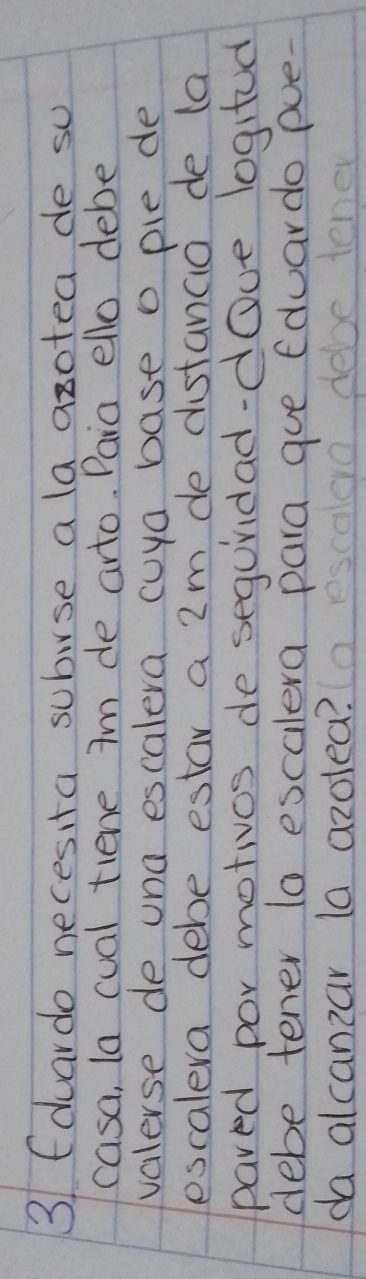 3. Eduardo necesita subirse a la azotea de su
casa, la cual tiene 7m de arto. Para ello debe
valerse de una escalera cuya base o pie de
escalera debe estar a 2m de distancia de la
pared por motivos de seguridad. ¿Que logitud
debe tener la escalera para que Eduardo pue-
da alcanzar la azotea? la escalera debe tener